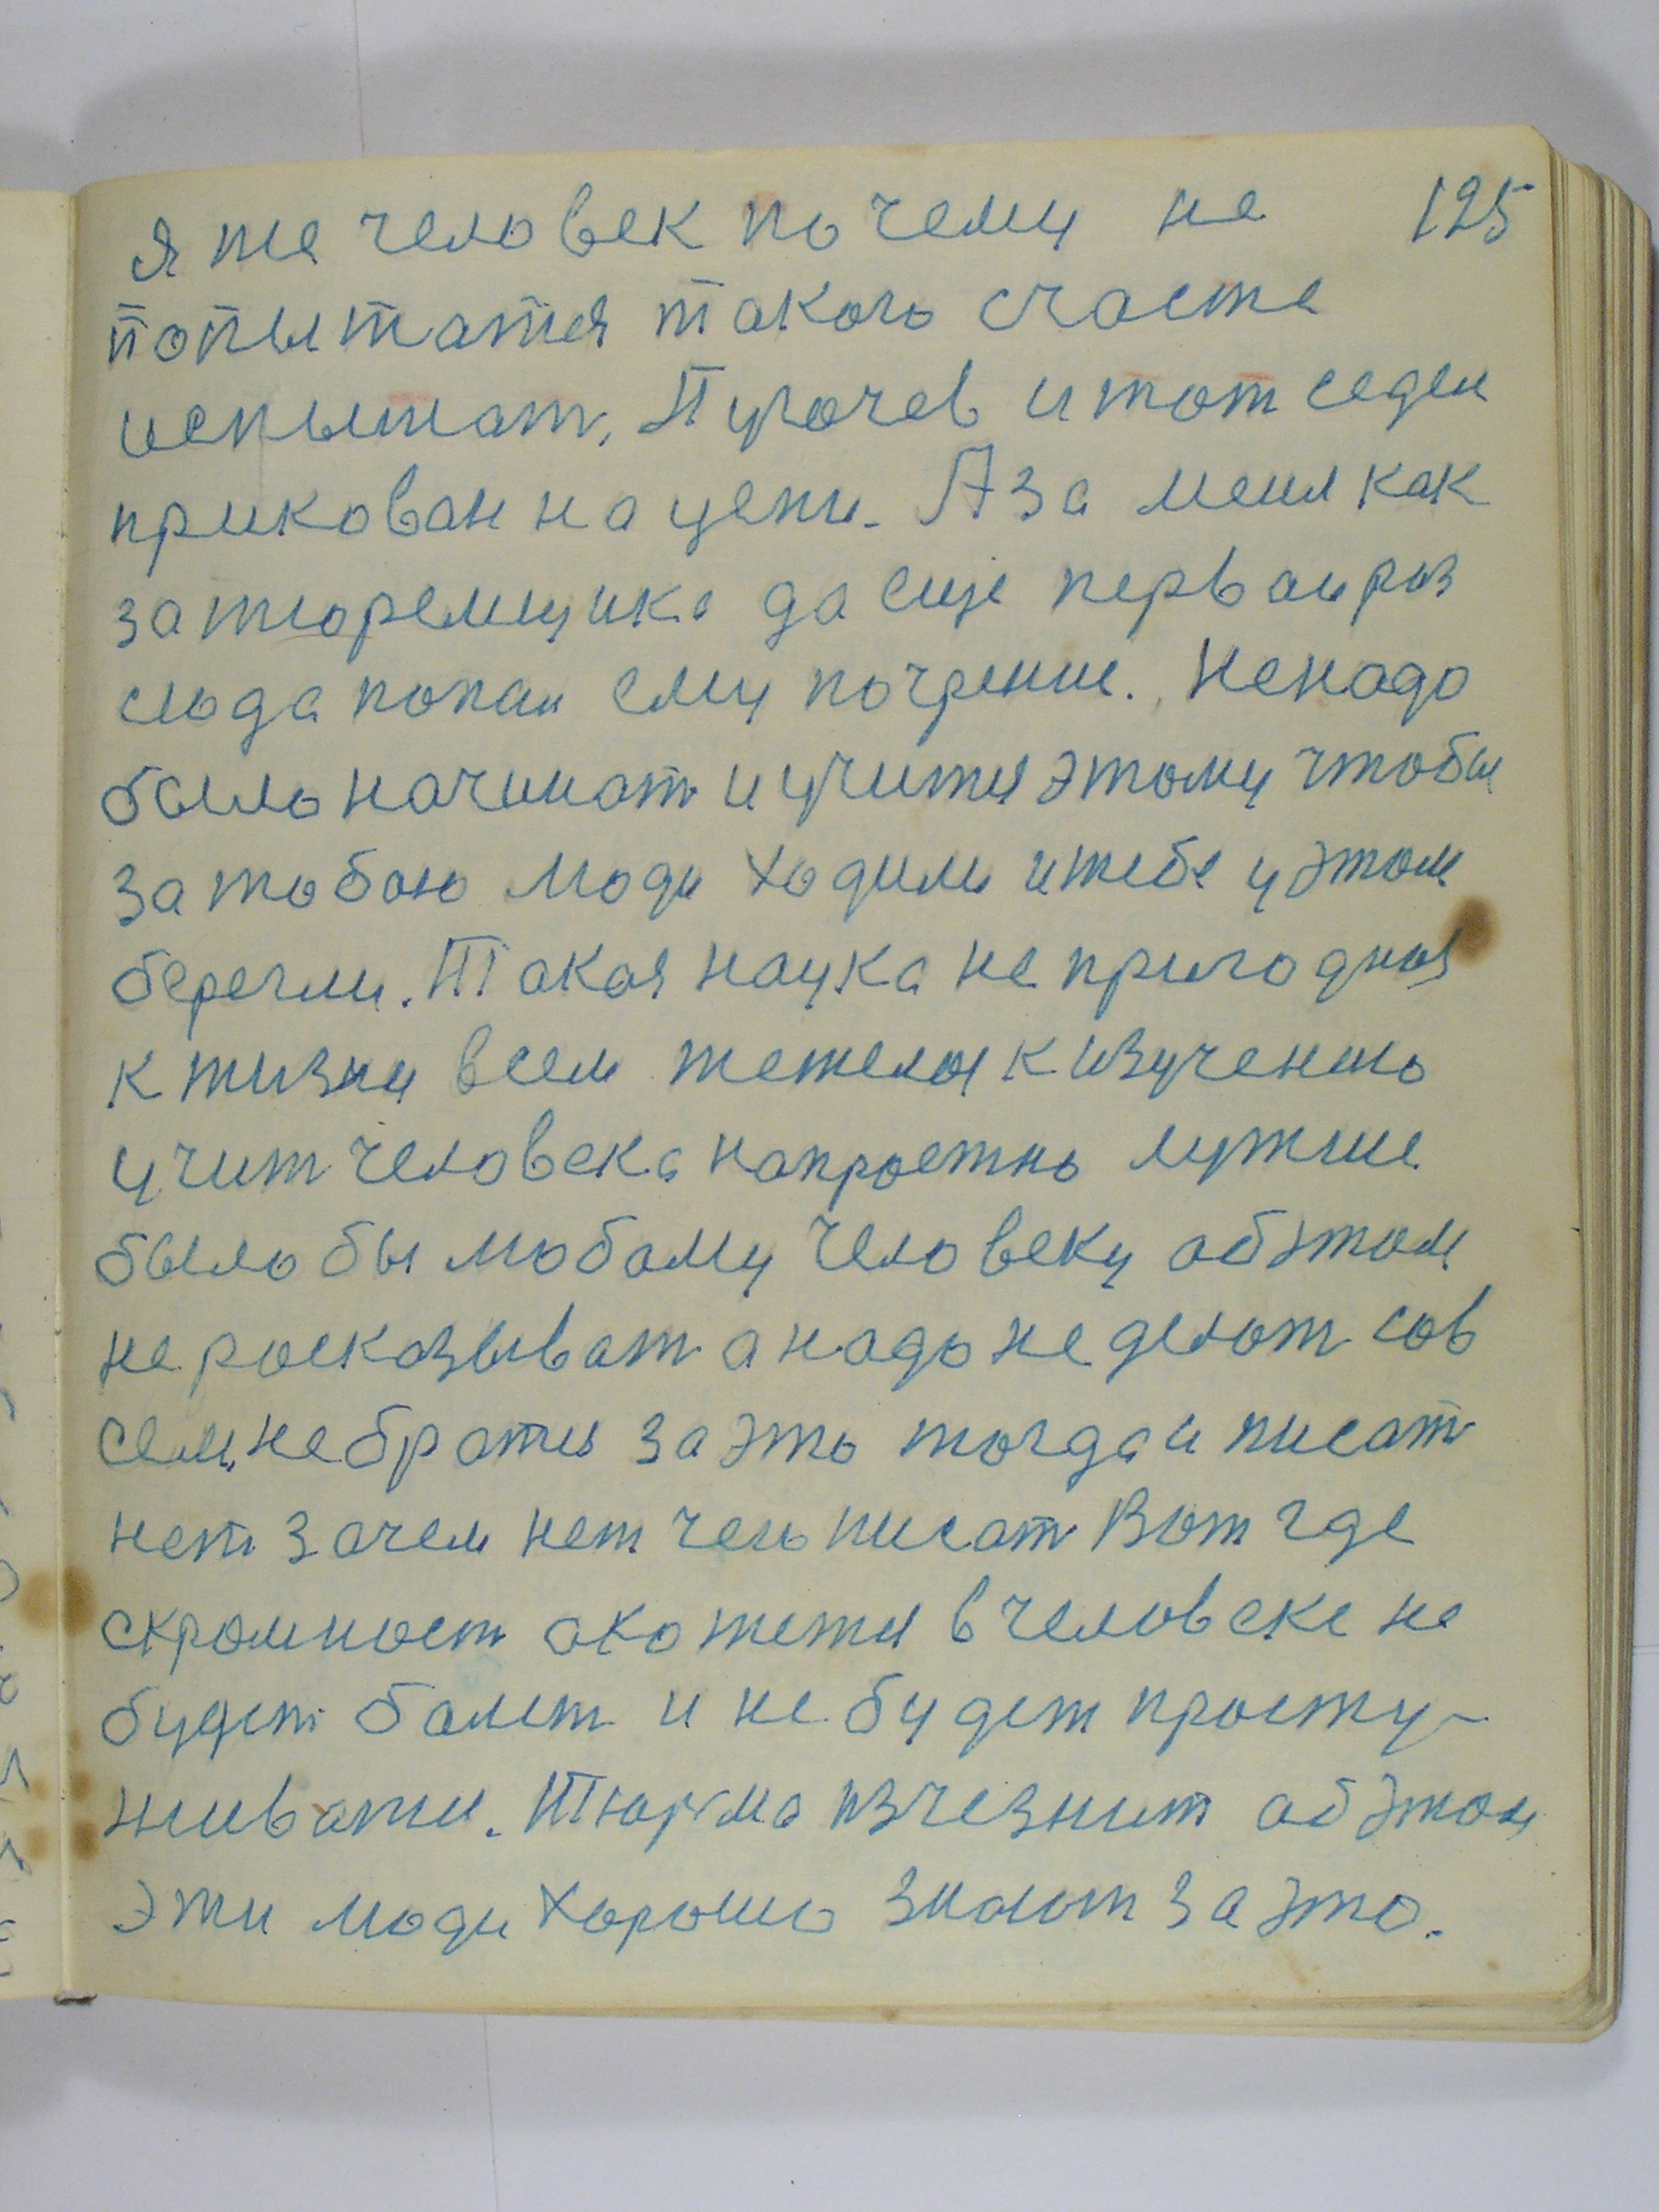 я же человек почему не 125
попытатся такого счастя
испытат. Пугочев и тот седел
прикован на цепи. А за меня как
за тюремщика да еще первый раз
сюда попал ему почрение. Ненадо
было начинат и учится этому чтобы
за тобою люди ходили и тебе у этом
беригли. Такая наука не пригодная
к жизни всем тежелая к изучению
учит человека напрастно лутше
было бы любому человеку об этом
не расказыват а надо не делат сов
сем, не братся за это тогда и писат
нет зачем нет чего писат Вот где
скромност окажется в человеке не
будет болет и не будет просту-
живатся. Тюрма изчезнит об этом
эти люди хорошо знают за это.